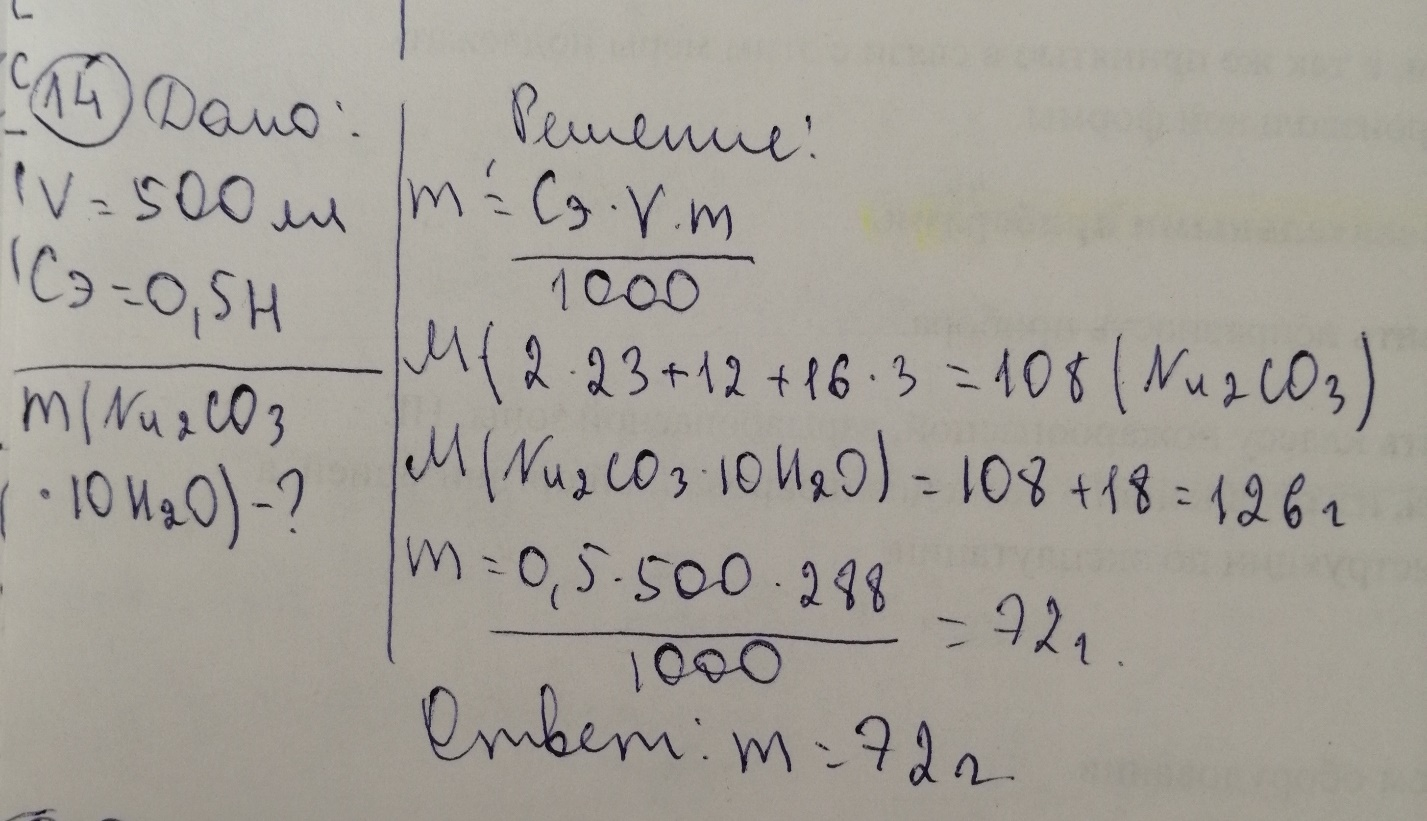 14 Дано:
V = 500 мл
Cэ = 0,5н
m(Na2CO3
· 10H2O) - ?
Решение:
m = Cэ · V · m
1000
M(2 · 23 + 12 + 16 · 3 = 108 (Na2CO3)
M(Na2CO3 · 10H2O) = 108 + 18 = 126 г
m = 0,5 · 500 · 288 = 72 г.
1000
Ответ: m = 72 г